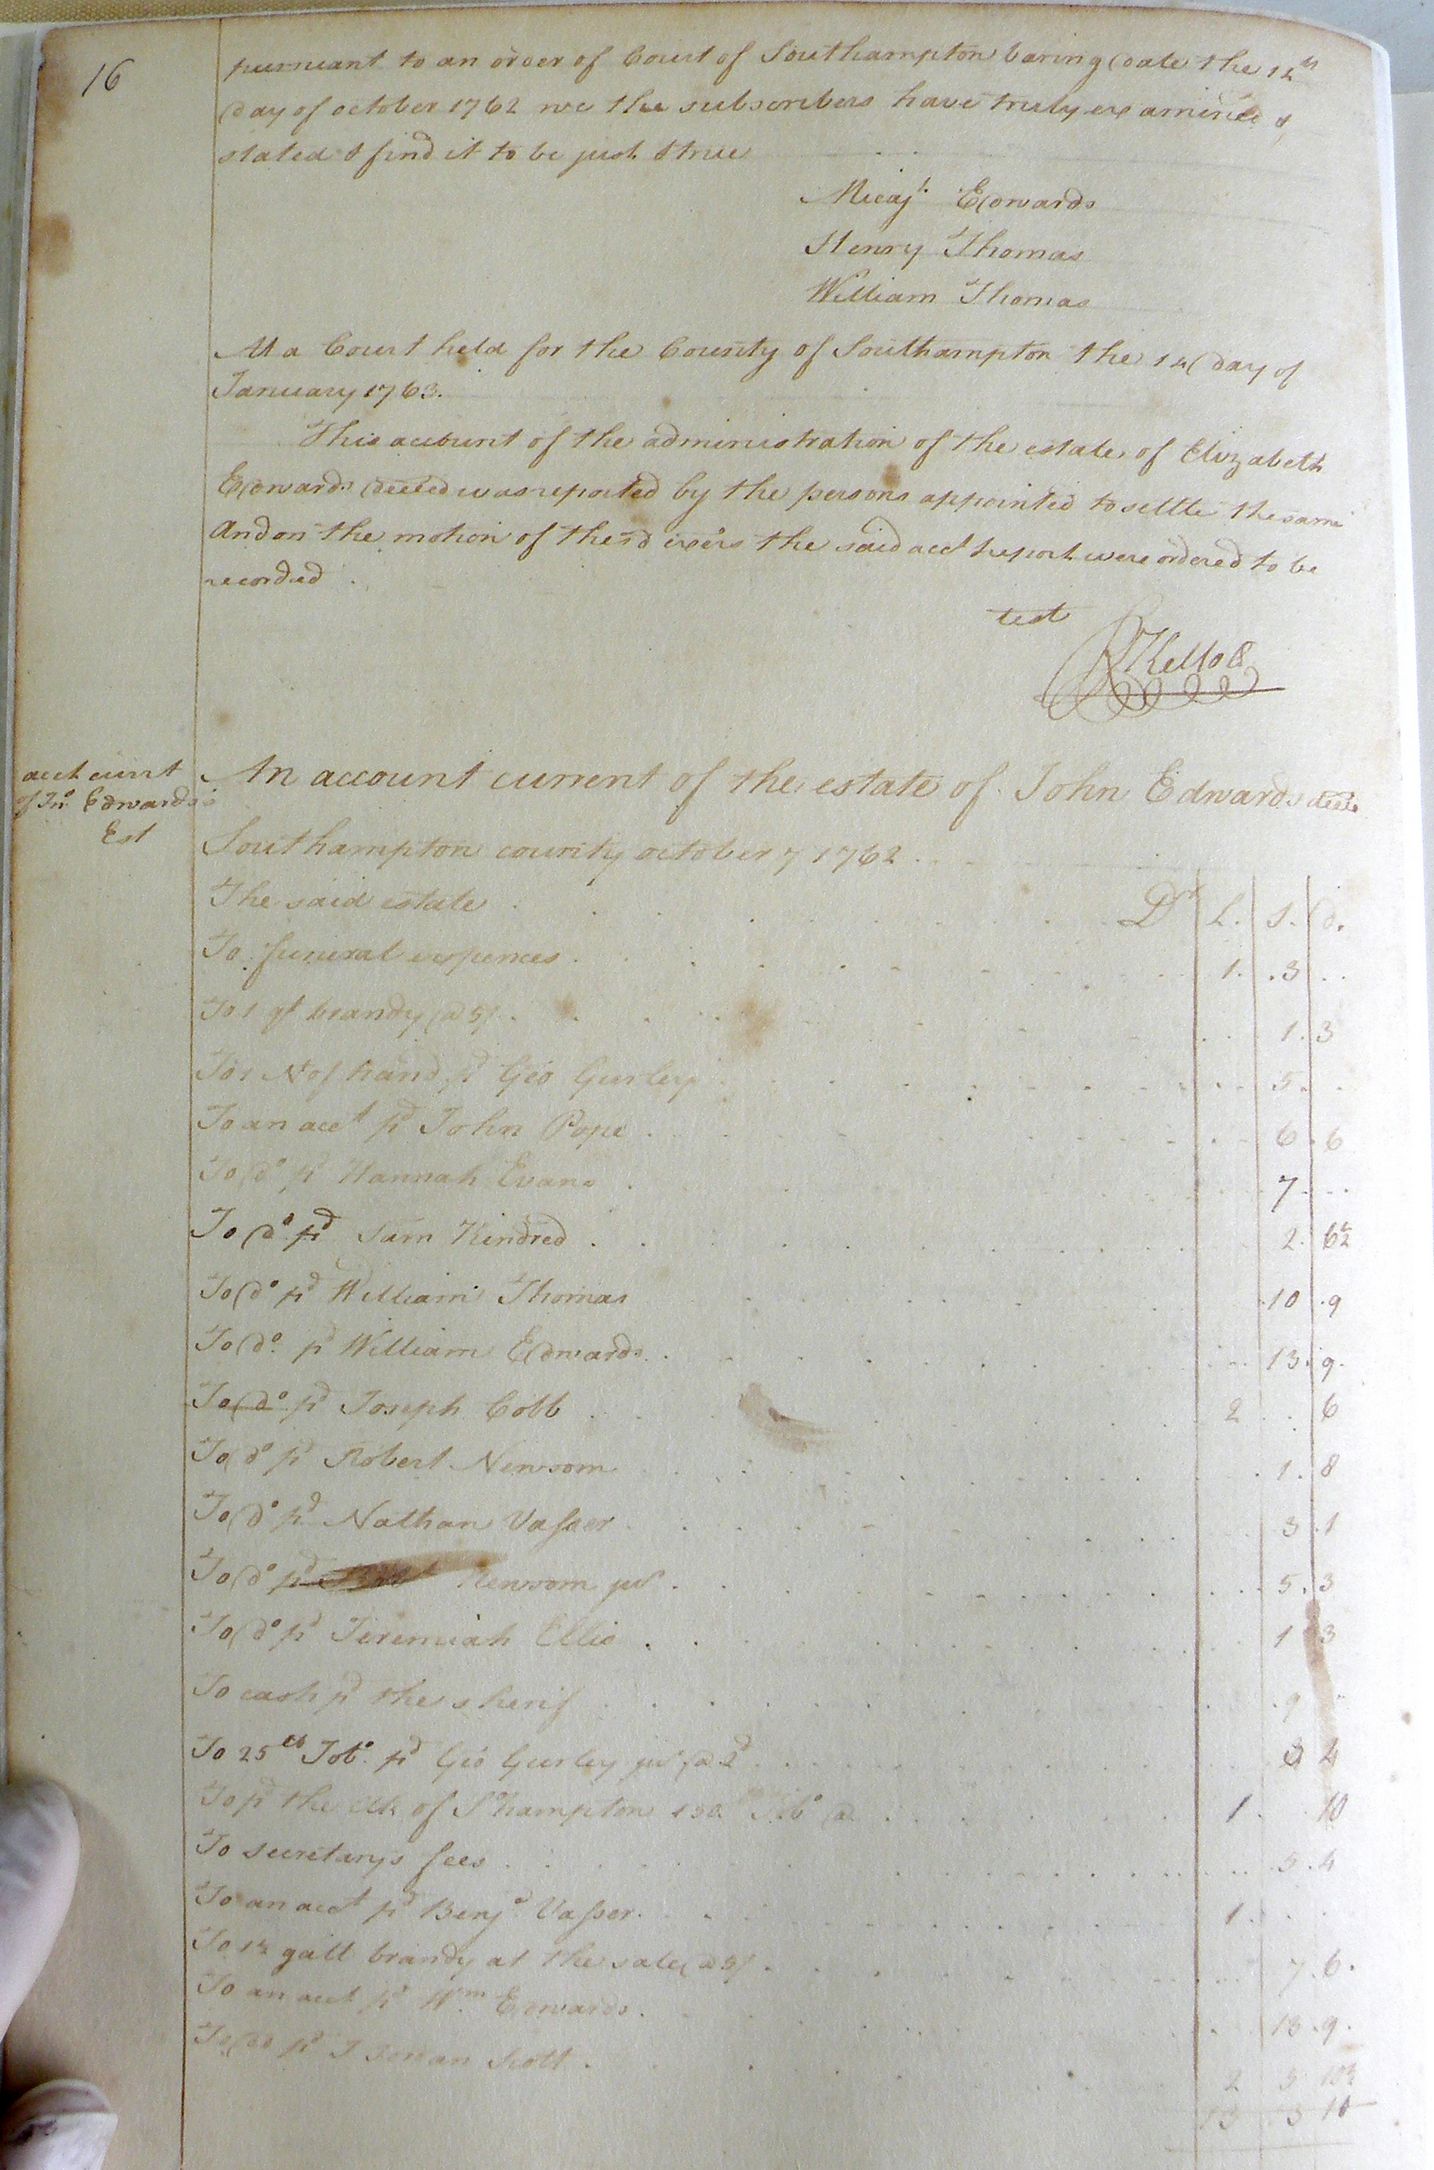 16
pursuant to an order of Court of Southampton baring date the 12th
day of october 1762 we the subscribers have truly examined &
stated & find it to be just & true
Micaj. Edwards
Henry Thomas
William Thomas
At a Court held for the County of Southampton the 14 day of
January 1763.
This account of the administration of the estate of Elizabeth
Edwards deceed was reported by the persons appointed to settle the same
And on the motion of the sd exōrs the said acct & report were ordered to be
recorded
test
RKello
acct curnt
of Jno. Edwards's
Est
An account current of the estate of John Edwards decd
Southampton county october 7 1762
The said estate Dr L. S. d.
To funeral expences 1. 3
To 1 qt brandy @ 5/ 1. 3
To 1 N of hand pd Geo Gurley 5.
To an acct pd John Pope 6. 6
To do pd Hannah Evans 7
To do pd Sam Kindred 2. 6½
To do pd William Thomas 10. 9
To do. pd William Edwards 13. 9
To do pd Joseph Cobb 2 . 6
To do pd Robert Newsom 1. 8
To do pd Nathan Vasser 3. 1
To do pd Newsom jur 5. 3
To do pd Jeremiah Ellis 1 3
To cash pd the sherif 9
To 25 lb Tobo. pd Geo Gurley jur @ 2d 4
To pd the Clk of S'hampton 130 Tobo @ 1. . 10
To secretarys fees 5. 4
To an acct pd Benja Vasser 1.
To 1½ gall brandy at the sale @ 5/ 7. 6.
To an acct pd Wm Edwards. 13. 9.
To do pd Scott 2 3 10½
13 3 10